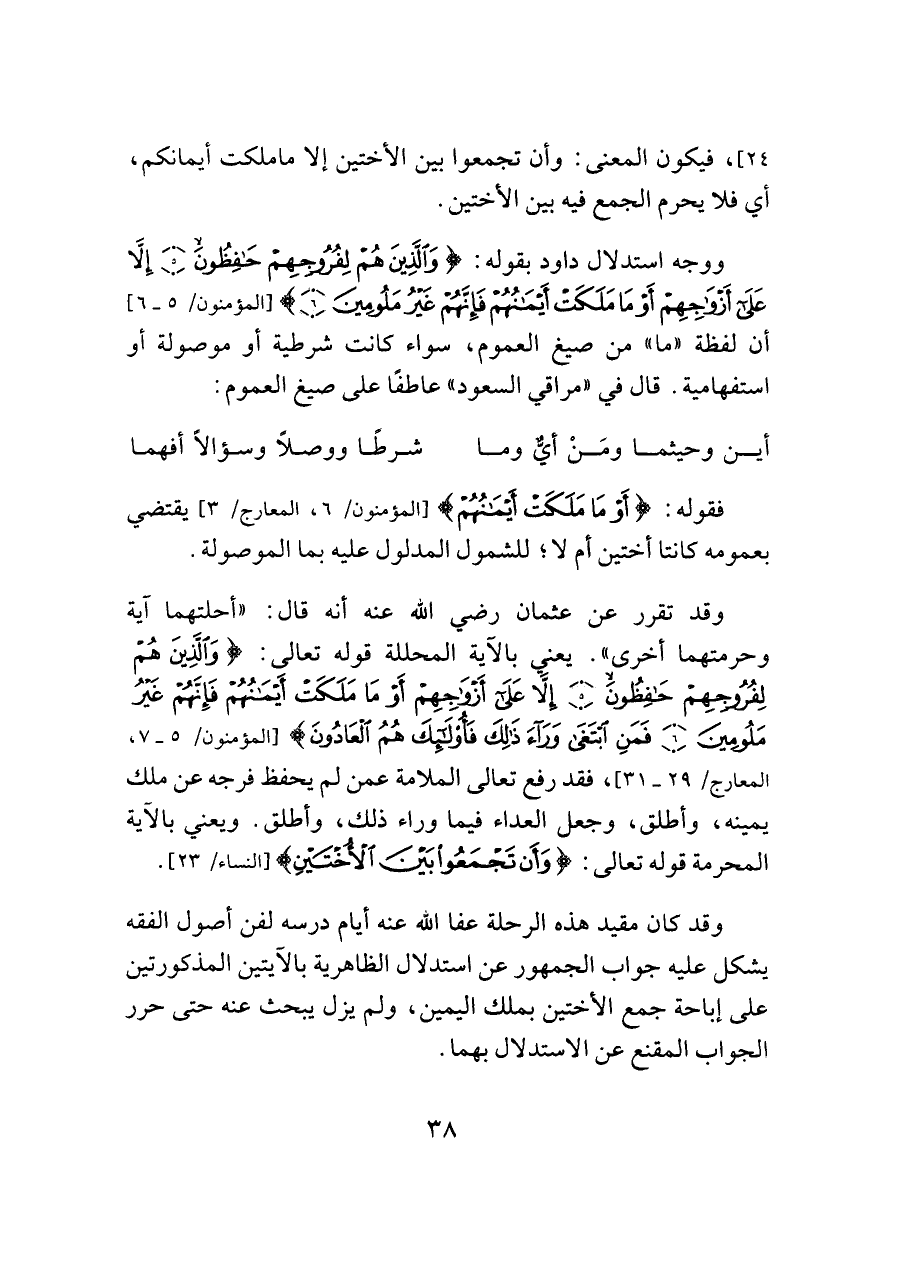 ٢٤]، فيكون المعنى: وأن تجمعوا بين الأختين إلا ماملكت أيمانكم،
أي فلا يحرم الجمع فيه بين الأختين.
ووجه استدلال داود بقوله: ﴿وَٱلَّذِينَ هُمْ لِفُرُوجِهِمْ حَٰفِظُونَ ۙ ٥ إِلَّا
عَلَىٰٓ أَزْوَٰجِهِمْ أَوْ مَا مَلَكَتْ أَيْمَٰنُهُمْ فَإِنَّهُمْ غَيْرُ مَلُومِينَ ٦﴾ [المؤمنون/ ٥ ـ ٦]
أن لفظة «ما» من صيغ العموم، سواء كانت شرطية أو موصولة أو
استفهامية. قال في «مراقي السعود» عاطفًا على صيغ العموم:
أيــن وحيثمــا ومَــنْ أيٌّ ومــا شــرطًــا ووصــلاً وســؤالاً أفهمــا
فقوله: ﴿أَوْ مَا مَلَكَتْ أَيْمَٰنُهُمْ﴾ [المؤمنون/ ٦، المعارج/ ٣] يقتضي
بعمومه كانتا أختين أم لا؛ للشمول المدلول عليه بما الموصولة.
وقد تقرر عن عثمان رضي الله عنه أنه قال: «أحلتهما آية
وحرمتهما أخرى». يعني بالآية المحللة قوله تعالى: ﴿وَٱلَّذِينَ هُمْ
لِفُرُوجِهِمْ حَٰفِظُونَ ۙ ٥ إِلَّا عَلَىٰٓ أَزْوَٰجِهِمْ أَوْ مَا مَلَكَتْ أَيْمَٰنُهُمْ فَإِنَّهُمْ غَيْرُ
مَلُومِينَ ٦ فَمَنِ ٱبْتَغَىٰ وَرَآءَ ذَٰلِكَ فَأُو۟لَٰٓئِكَ هُمُ ٱلْعَادُونَ﴾ [المؤمنون/ ٥ ـ ٧،
المعارج/ ٢٩ ـ ٣١]، فقد رفع تعالى الملامة عمن لم يحفظ فرجه عن ملك
يمينه، وأطلق، وجعل العداء فيما وراء ذلك، وأطلق. ويعني بالآية
المحرمة قوله تعالى: ﴿وَأَن تَجْمَعُوا۟ بَيْنَ ٱلْأُخْتَيْنِ﴾ [النساء/ ٢٣].
وقد كان مقيد هذه الرحلة عفا الله عنه أيام درسه لفن أصول الفقه
يشكل عليه جواب الجمهور عن استدلال الظاهرية بالآيتين المذكورتين
على إباحة جمع الأختين بملك اليمين، ولم يزل يبحث عنه حتى حرر
الجواب المقنع عن الاستدلال بهما.
٣٨